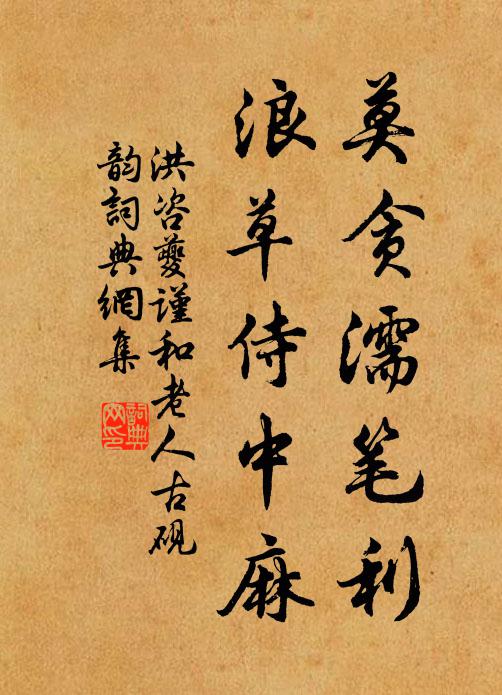 莫贪濡笔利
浪草侍中麻
洪咨夔谨和老人古砚
韵词典網集
詞典
网印